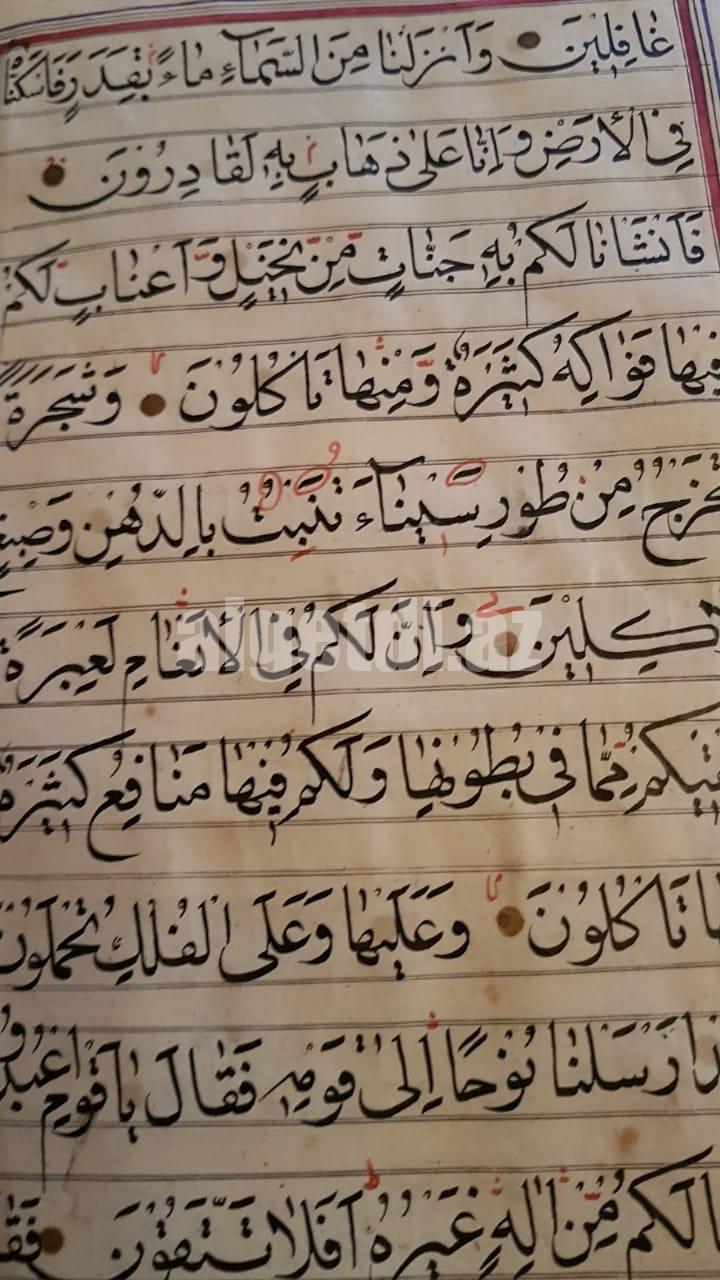 غَافِلِينَ وَاَنْزَلْنَا مِنَ السَّمَاءِ مَاءً بِقَدَرٍ فَاَسْكَنَّا
فِي الْاَرْضِ وَاِنَّا عَلٰى ذَهَابٍ بِهٖ لَقَادِرُونَ
فَاَنْشَأْنَا لَكُمْ بِهٖ جَنَّاتٍ مِنْ نَخِيلٍ وَاَعْنَابٍ لَكُمْ
فِيهَا فَوَاكِهُ كَثِيرَةٌ وَمِنْهَا تَاْكُلُونَ وَشَجَرَةً
تَخْرُجُ مِنْ طُورِ سَيْنَاءَ تَنْبُتُ بِالدُّهْنِ وَصِبْغٍ
كِلِينَ وَاِنَّ لَكُمْ فِي الْاَنْعَامِ لَعِبْرَةً
قِيكُمْ مِمَّا فِي بُطُونِهَا وَلَكُمْ فِيهَا مَنَافِعُ كَثِيرَةٌ
هَا تَاْكُلُونَ وَعَلَيْهَا وَعَلَى الْفُلْكِ تُحْمَلُونَ
دْ اَرْسَلْنَا نُوحًا اِلٰى قَوْمِهٖ فَقَالَ يَا قَوْمِ اعْبُدُو
ا لَكُمْ مِنْ اِلٰهٍ غَيْرُهُ اَفَلَا تَتَّقُونَ فَقَا
alqetdi.az